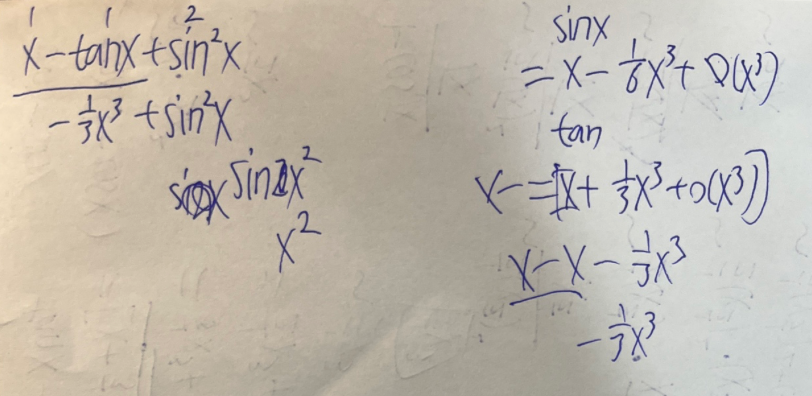 1 1 2
x - tanx + sin²x
- 1/3 x³ + sin²x
x²
sinx
= x - 1/6 x³ + O(x³)
tan
x - = [x + 1/3 x³ + o(x³)]
x - x - 1/3 x³
- 1/3 x³